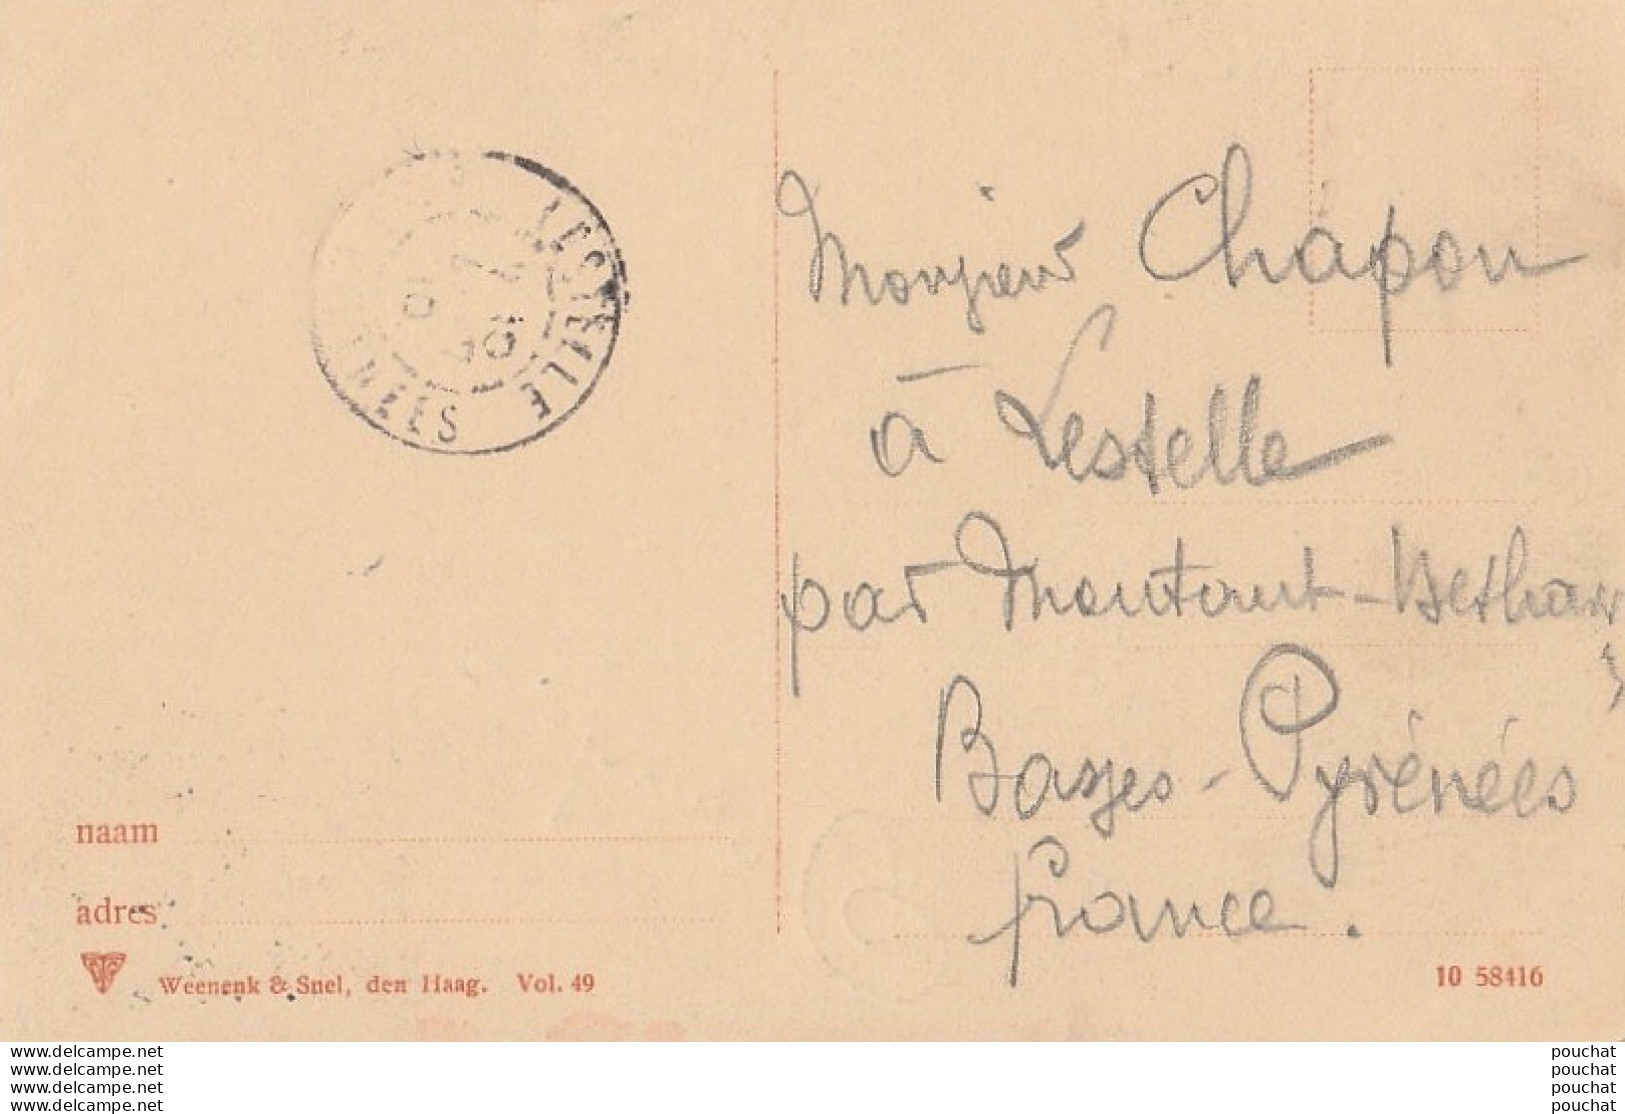 LESTELLE
Monsieur Chapon
à Lestelle
par Montaut-Betharr
Basses-Pyrénées
France.
naam
adres
Weenenk & Snel, den Haag. Vol. 49
10 58416
www.delcampe.net
www.delcampe.net
www.delcampe.net
www.delcampe.net
pouchat
pouchat
pouchat
pouchat